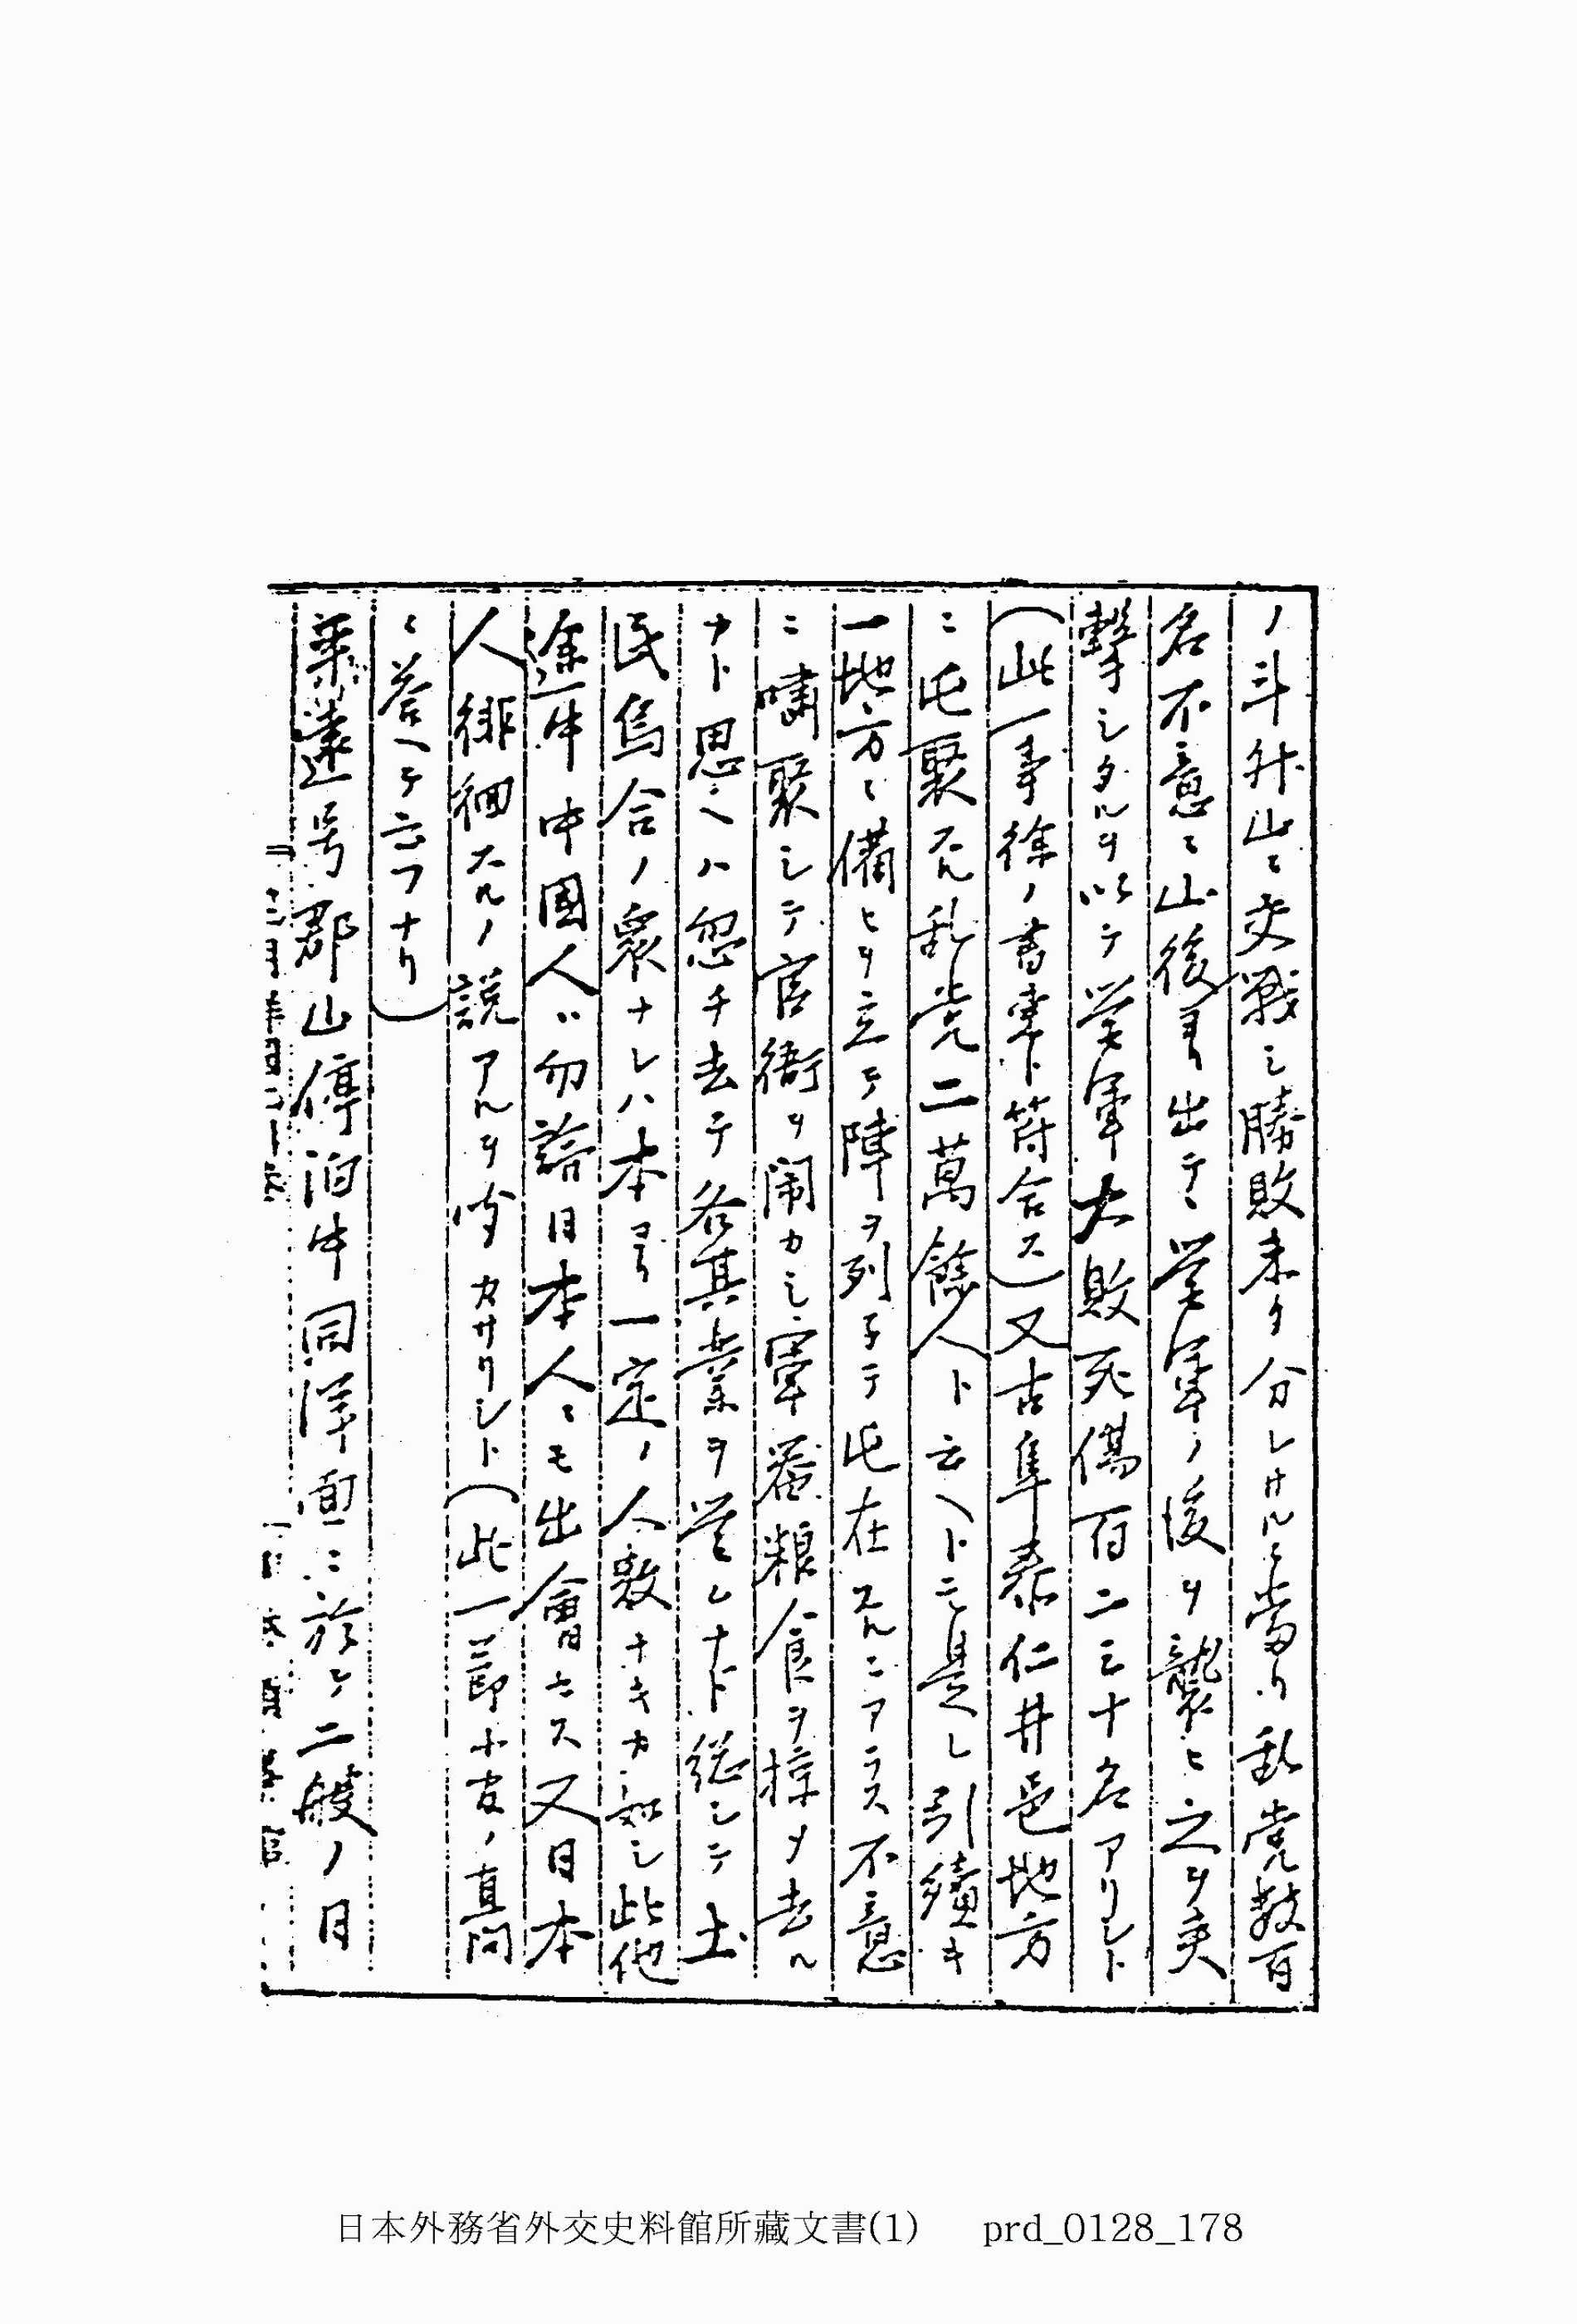 ノ斗升山ニ交戦シ勝敗未タ分レサルニ當リ乱党数百
名不意ニ山後ヨリ出テ營軍ノ後ヲ襲ヒ之ヲ夾
撃シタルヲ以テ営軍大敗死傷百二三十名アリシト
(此一事徐ノ書束ト符合ス)又古阜泰仁井邑地方
ニ屯聚スル乱党二萬餘人ト云ヘトモ是レ引續キ
一地方ニ備ヒヲ立テ陣ヲ列子テ屯在スルニアラス不意
ニ嘯聚シテ官衙ヲ閙カシ軍器粮食ヲ掠メ去ル
ナト思ヘハ忽チ去テ各其業ヲ営レナド総シテ土
民烏合ノ衆ナレハ本ヨリ一定ノ人数ナキカ如シ此他
途中中國人ハ勿論日本人ニモ出會セス又日本
人徘徊スルノ説アルヲ聞カサリシト(此一節小官ノ真問
ニ答ヘテ云フナリ)
平遠号群山停泊中同洋面ニ於テ二艘ノ日
日本外務省外交史料館所藏文書(1) prd_0128_178